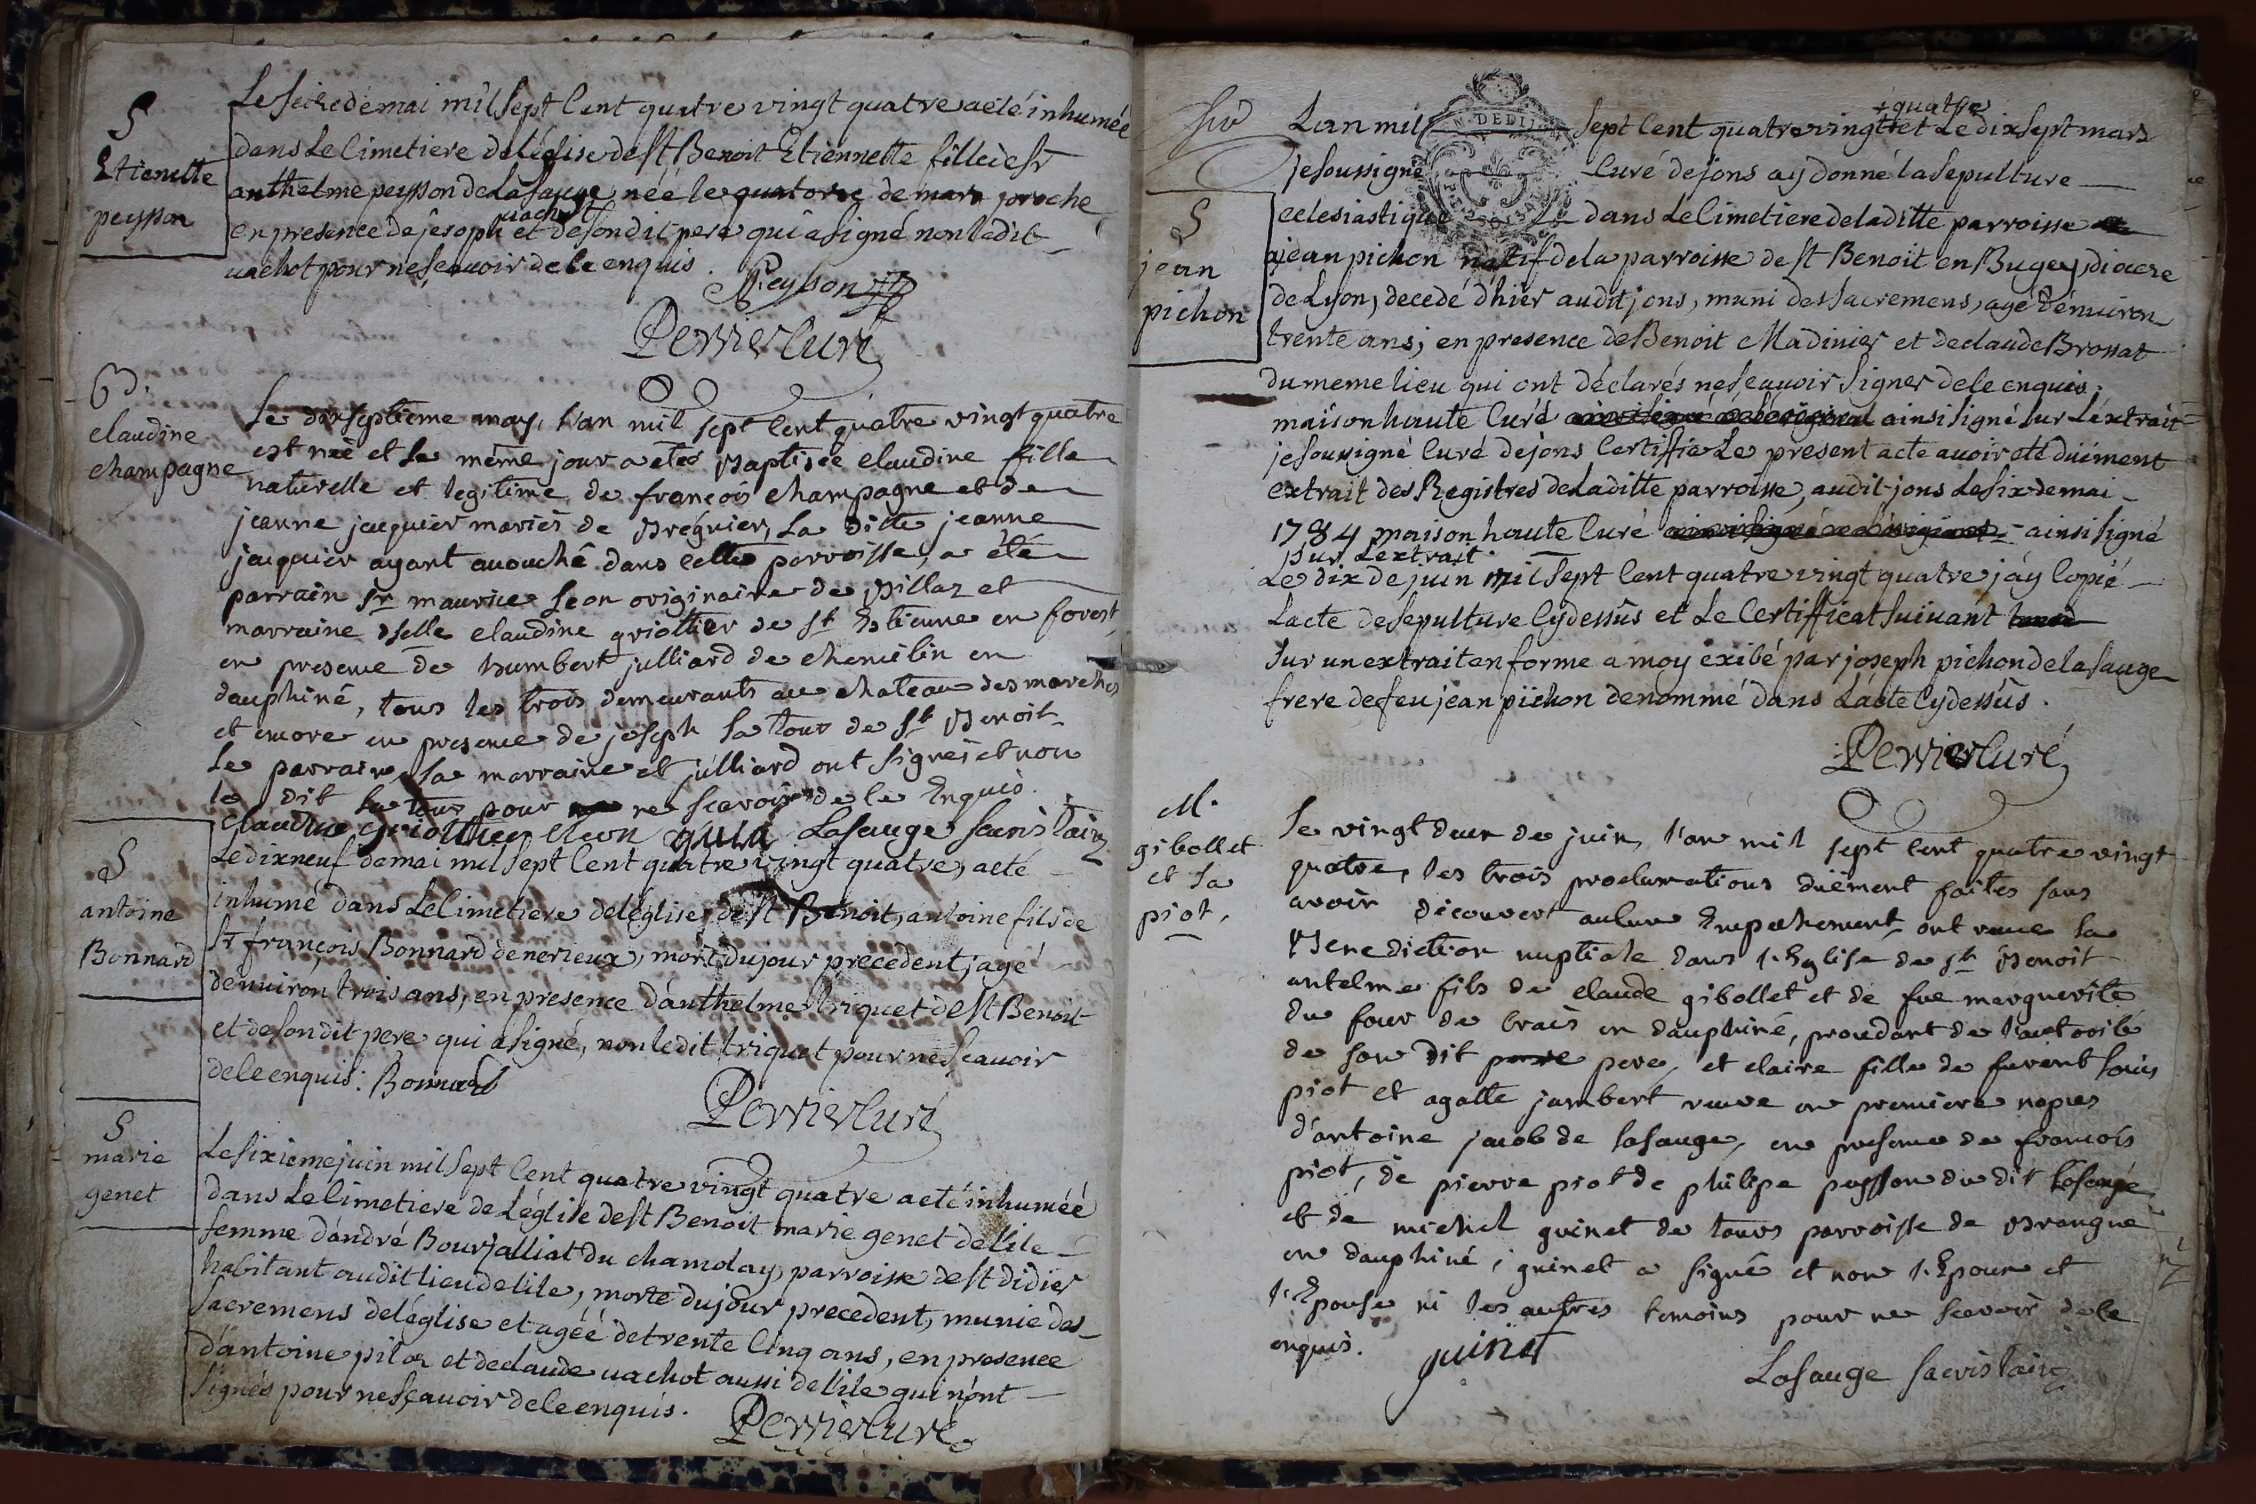 S
Etienette
peysson
Le seize de mai mil sept cent quatre vingt quatre a été inhumée
dans Le Cimetiere de l'église de St Benoit Etiennette fille de sr
anthelme peysson de La sauge née le quatorze de mars proche
en presence de jêsoph vachot et de son dit pere qui a signé non ledit
vachot pour ne sçeavoir de ce enquis. Peysson
Perrier Curé
B.
claudine
champagne
Le dix septieme may, l'an mil sept cent quatre vingt quatre
est neé et le même jour a etéé Baptisée claudine fille
naturelle et legitime de françois champagne et de
jeanne jacquier mariés de Bregnier, La ditte jeanne
jacquier ayant acouché dans cette parroisse, a été
parrain sr maurice Leon originaire de Billaz et
marraine dselle claudine griottier de st Estienne en forest
en presence de humbert julliard de chemilin en
dauphiné, tous les trois demeurants au chateau des marches
et encore en presence de joseph La tour de St Benoit
Le parrain, La marraine et julliard ont signés et non
le dit La tour pour ne scavoir de ce Enquis.
claudine griotthier Leon Lasauge sacristain
S
antoine
Bonnard
Le dixneuf de mai mil sept Cent quatre vingt quatre, a eté
inhumé dans Le Cimetiere de l'église, de St Benoit, antoine fils de
Sr françois Bonnard de nerieux, mort du jour precedent, agé
d'environ trois ans, en presence d'anthelme triquet de St Benoit
et de son dit pere qui a signé, non ledit triquet pour ne sçeavoir
de ce enquis: Bonnard
Perrier Curé
S
marie
genet
Le sixieme juin mil sept Cent quatre vingt quatre a eté inhuméé
dans Le Cimetiere de L'église de St Benoit marie genet de l'ile
femme d'andré Bourjalliat du chamolay, parroisse de St didier
habitant audit lieu de l'ile, morte du jour precedent, munie des
sacremens de l'église et agéé de trente Cinq ans, en presence
d'antoine pilaz et de claude vachot aussi de l'ile qui n'ont
signés pour ne sçavoir de ce enquis.
Perrier Curé
S
jean
pichon
Lan mil sept Cent quatre vingt + quatre et Le dix sept mars
je soussigné Curé de jons ay donné la sepulture
eclesiastique dans Le Cimetiere de la ditte parroisse
a jean pichon natif de la parroisse de St Benoit en Bugey, diocese
de Lyon, decedé d'hier audit jons, muni des sacremens, agé d'environ
trente ans; en presence de Benoit Madinier et de claude Brossat
du meme lieu qui ont déclarés ne sçavoir signer de ce enquis.
maison haute Curé ainsi signé sur L'éxtrait
je soussigné Curé de jons Certiffie Le present acte avoir eté duëment
extrait des Registres de La ditte parroisse, audit jons Le six de mai
1784 maison haute Curé ainsi signé
sur L'extrait
Le dix de juin mil sept Cent quatre vingt quatre j'ay Copié
L'acte de sepulture Cy dessus et Le Certifficat suivant
sur un extrait en forme a moy exibé par joseph pichon de la sauge
frere de feu jean pichon denommé dans L'acte Cy dessus.
Perrier Curé
M.
gibollet
et La
piot.
Le vingt deux de juin, l'an mil sept cent quatre vingt
quatre, les trois proclamations duëment faites sans
avoir découvert aulcun Empechement, ont reçue La
Benediction nuptiale dans l'Eglise de St Benoit
antelme fils de claude gibollet et de fue marguerite
du four de brais en dauphiné, procédant de l'autorité
de son dit pere, et claire fille de furent Louis
piot et agatte jambert veuve en premiere nopces
d'antoine jacob de Lasauge, en presence de francois
piot, de pierre piot de philipe peysson du dit Lasauge
et de michel guinet de tours parroisse de Brangue
en dauphiné, guinet a signé et non l'Epoux et
l'Epouse ni les autres temoins pour ne scavoir de ce
enquis. guinet
Lasauge sacristain